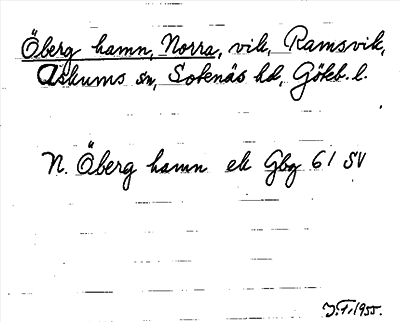 Öberg hamn, Norra, vik, Ramsvik,
Askums sn, Sotenäs hd, Göteb. l.
N. Öberg hamn ek Gbg 61 SV
J.F. 1955.